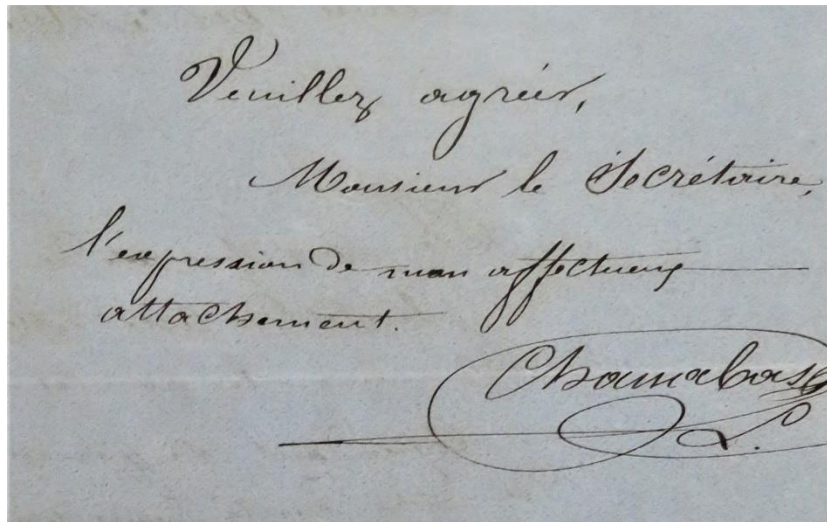 Veuillez agréer,
Monsieur le Secrétaire,
l'expression de mon affectueux
attachement.
L.